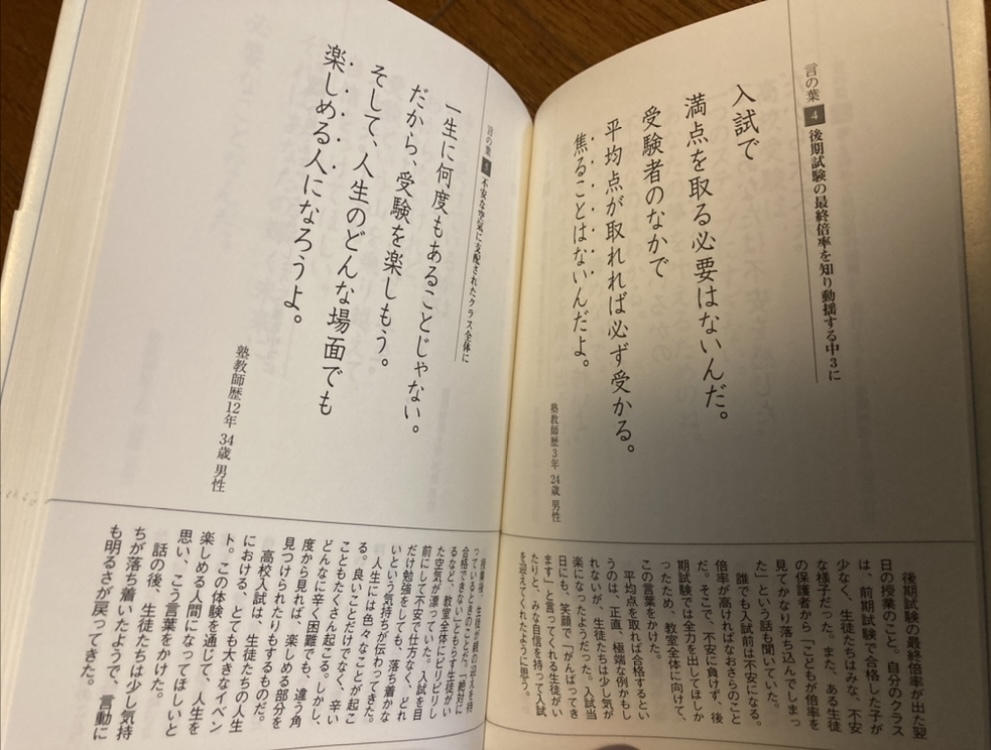 言の葉 4 後期試験の最終倍率を知り動揺する中3に
入試で
満点を取る必要はないんだ。
受験者のなかで
平均点が取れれば必ず受かる。
焦ることはないんだよ。
塾教師歴3年 24歳 男性
後期試験の最終倍率が出た翌
日の授業のこと。自分のクラス
は、前期試験で合格した子が
少なく、生徒たちはみな、不安
な様子だった。また、ある生徒
の保護者から「こどもが倍率を
見てかなり落ち込んでしまっ
た」という話も聞いていた。
誰でも入試前は不安になる。
倍率が高ければなおさらのこと
だ。そこで、不安に負けず、後
期試験では全力を出してほしか
ったため、教室全体に向けて、
この言葉をかけた。
平均点を取れば合格するとい
うのは、正直、極端な例かもし
れないが、生徒たちは少し気が
楽になったようだった。入試当
日にも、笑顔で「がんばってき
ます」と言ってくれる生徒がい
たりと、みな自信を持って入試
を迎えてくれたように思う。
言の葉 5 不安な空気に支配されたクラス全体に
一生に何度もあることじゃない。
だから、受験を楽しもう。
そして、人生のどんな場面でも
楽しめる人になろうよ。
塾教師歴12年 34歳 男性
授業後、生徒が親の迎えを待
っているときのことだ。「絶対に
合格できない」ともらす生徒がい
るなど、教室全体にピリピリし
た空気が漂っていた。入試を目
前にして不安で仕方なく、どれ
だけ勉強をしても、落ち着かな
いという気持ちが伝わってきた。
人生には色々なことが起こ
る。良いことだけでなく、辛い
こともたくさん起こる。しかし、
どんなに辛く困難でも、違う角
度から見れば、楽しめる部分を
見つけられたりもするものだ。
高校入試は、生徒たちの人生
における、とても大きなイベン
ト。この体験を通して、人生を
楽しめる人間になってほしいと
思い、こう言葉をかけた。
話の後、生徒たちは少し気持
ちが落ち着いたようで、言動に
も明るさが戻ってきた。